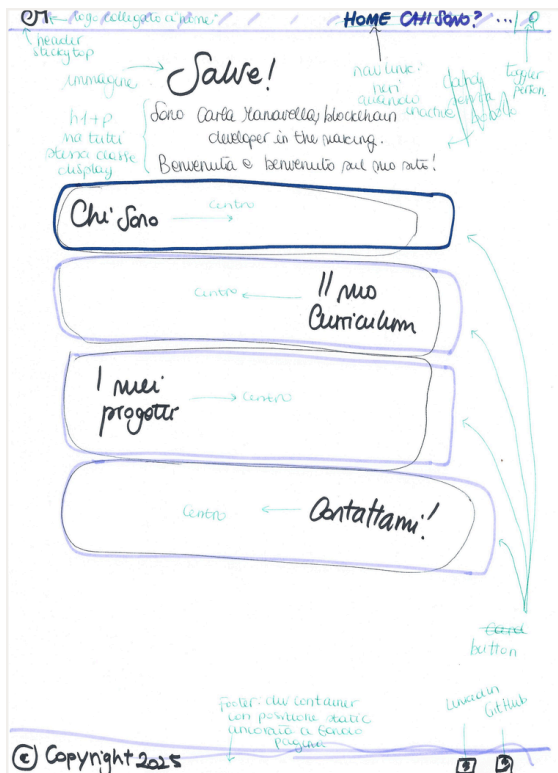 CM ← logo collegato a home
HOME CHI SONO? ...
header
sticky top
immagine →
Salve!
nav link:
neri
quando
inactive
toggler
person.
h1+p
ma tutti
stessa classe
display
Sono Carla Manavella, blockchain
developer in the making.
Benvenuta e benvenuto sul mio sito!
Chi sono
centro →
centro ←
Il mio
Curriculum
I miei
progetti
→ centro
centro ←
Contattami!
Card
button
Footer: div container
con position static
ancorata a fondo
pagina
LinkedIn
GitHub
© Copyright 2025